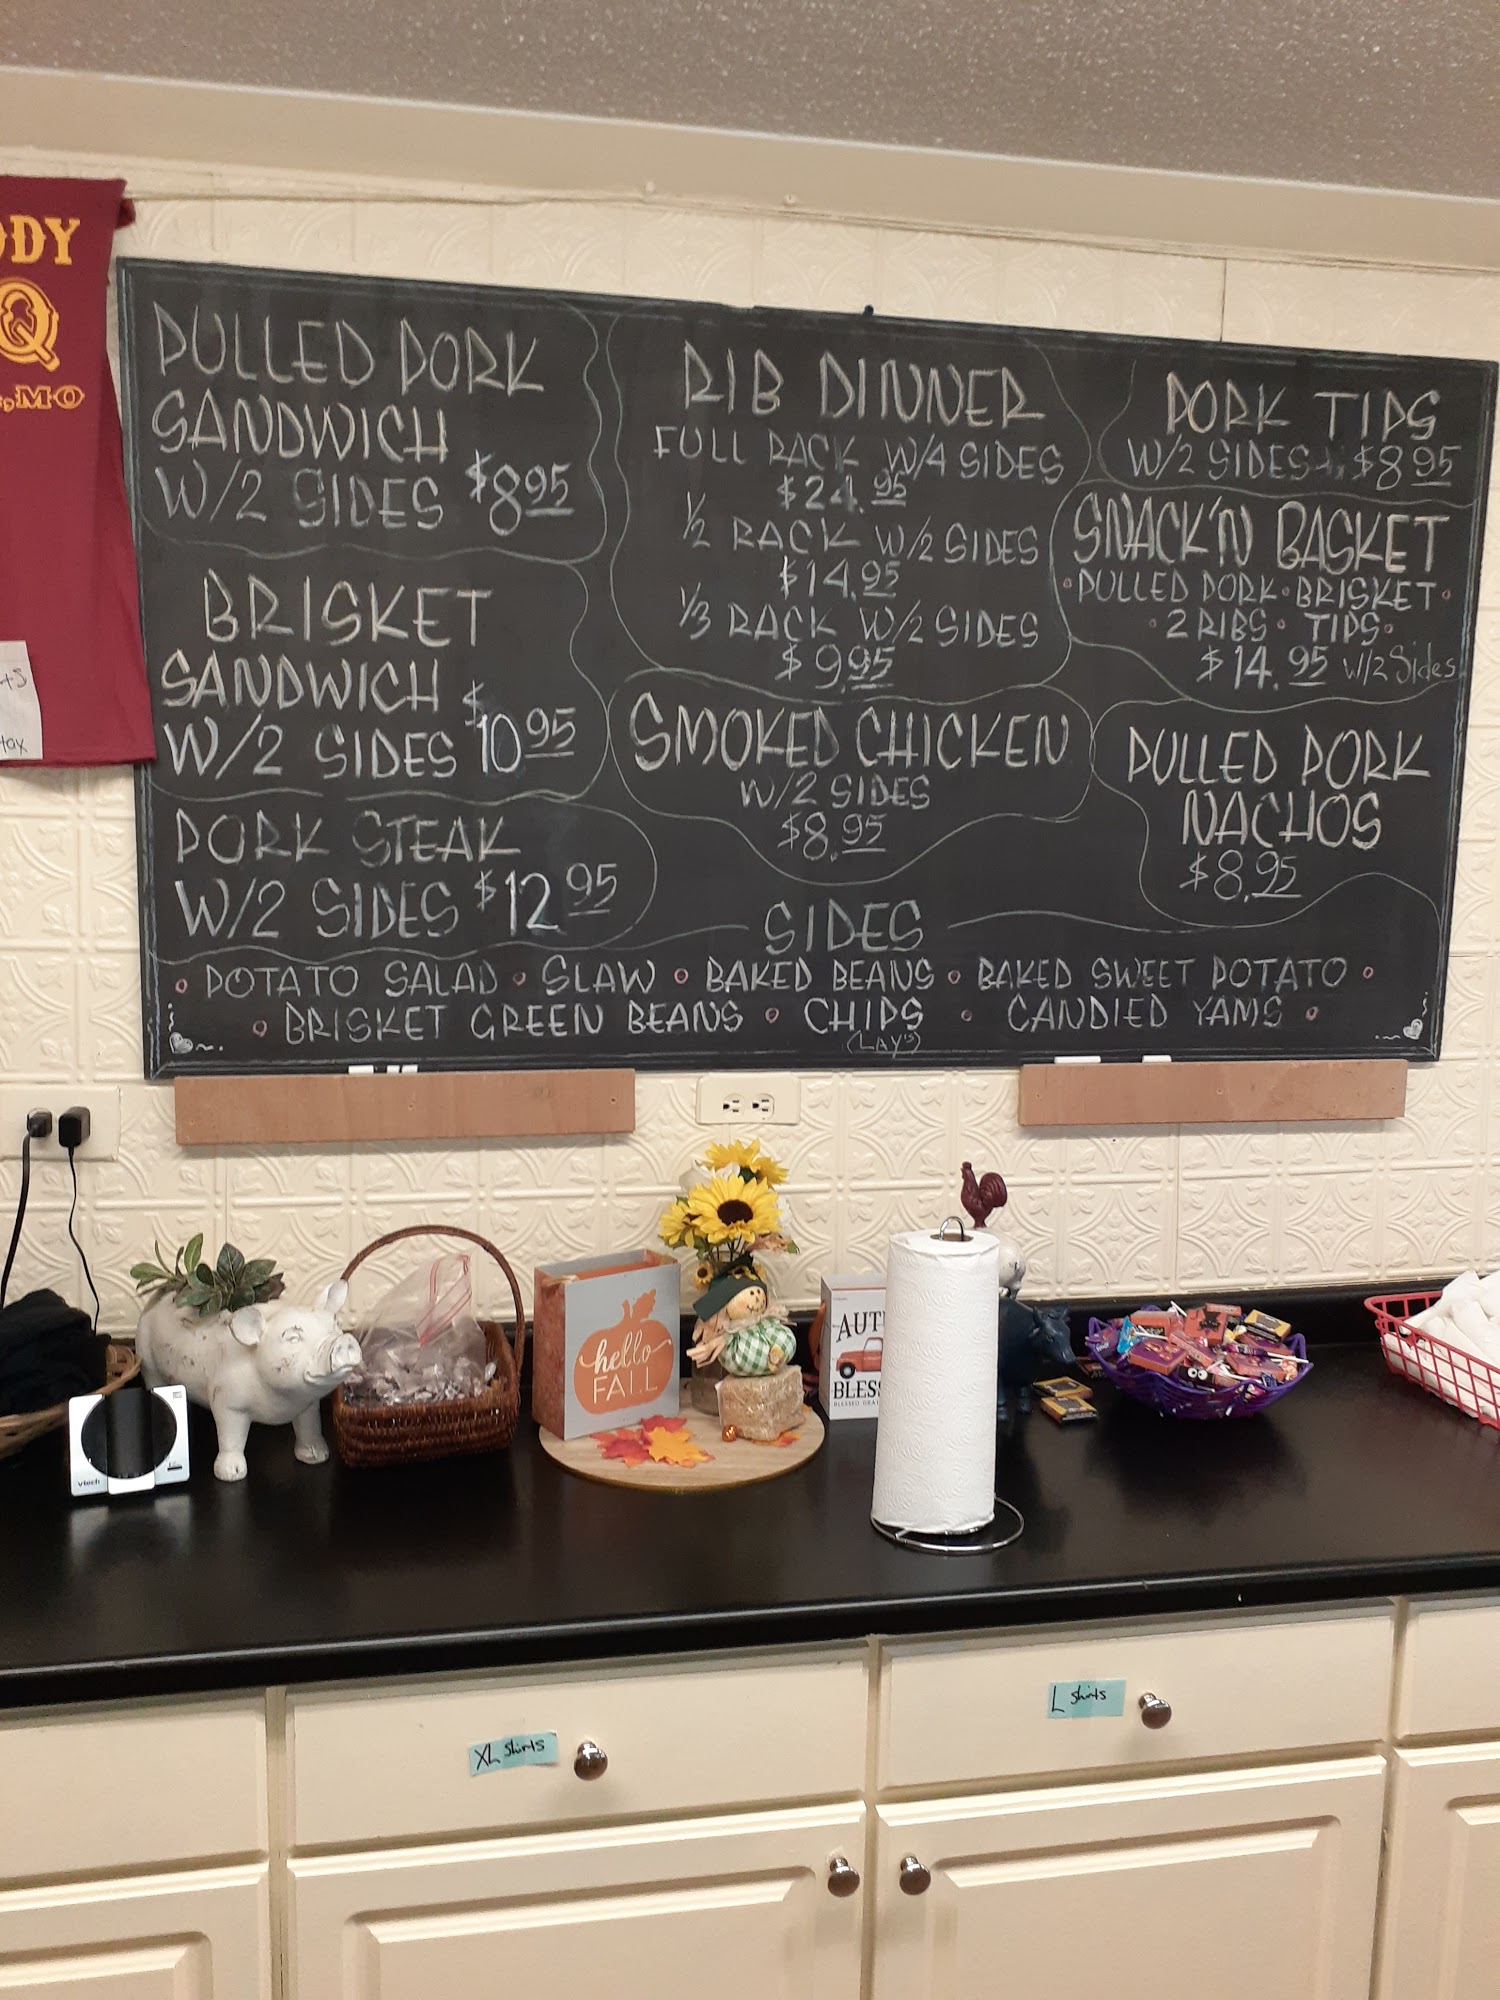 DDY
Q
, MO
PULLED PORK
SANDWICH
W/2 SIDES $8.95
BRISKET
SANDWICH
W/2 SIDES $10.95
PORK STEAK
W/2 SIDES $12.95
RIB DINNER
FULL RACK W/4 SIDES
$24.95
1/2 RACK W/2 SIDES
$14.95
1/3 RACK W/2 SIDES
$9.95
SMOKED CHICKEN
W/2 SIDES
$8.95
PORK TIPS
W/2 SIDES $8.95
SNACK'N BASKET
• PULLED PORK • BRISKET •
• 2 RIBS • TIPS •
$14.95 W/2 Sides
PULLED PORK
NACHOS
$8.95
SIDES
• POTATO SALAD • SLAW • BAKED BEANS • BAKED SWEET POTATO •
• BRISKET GREEN BEANS • CHIPS • CANDIED YAMS •
(LAY'S)
hello
FALL
AUT
BLESS
vtech
XL Shirts
L Shirts